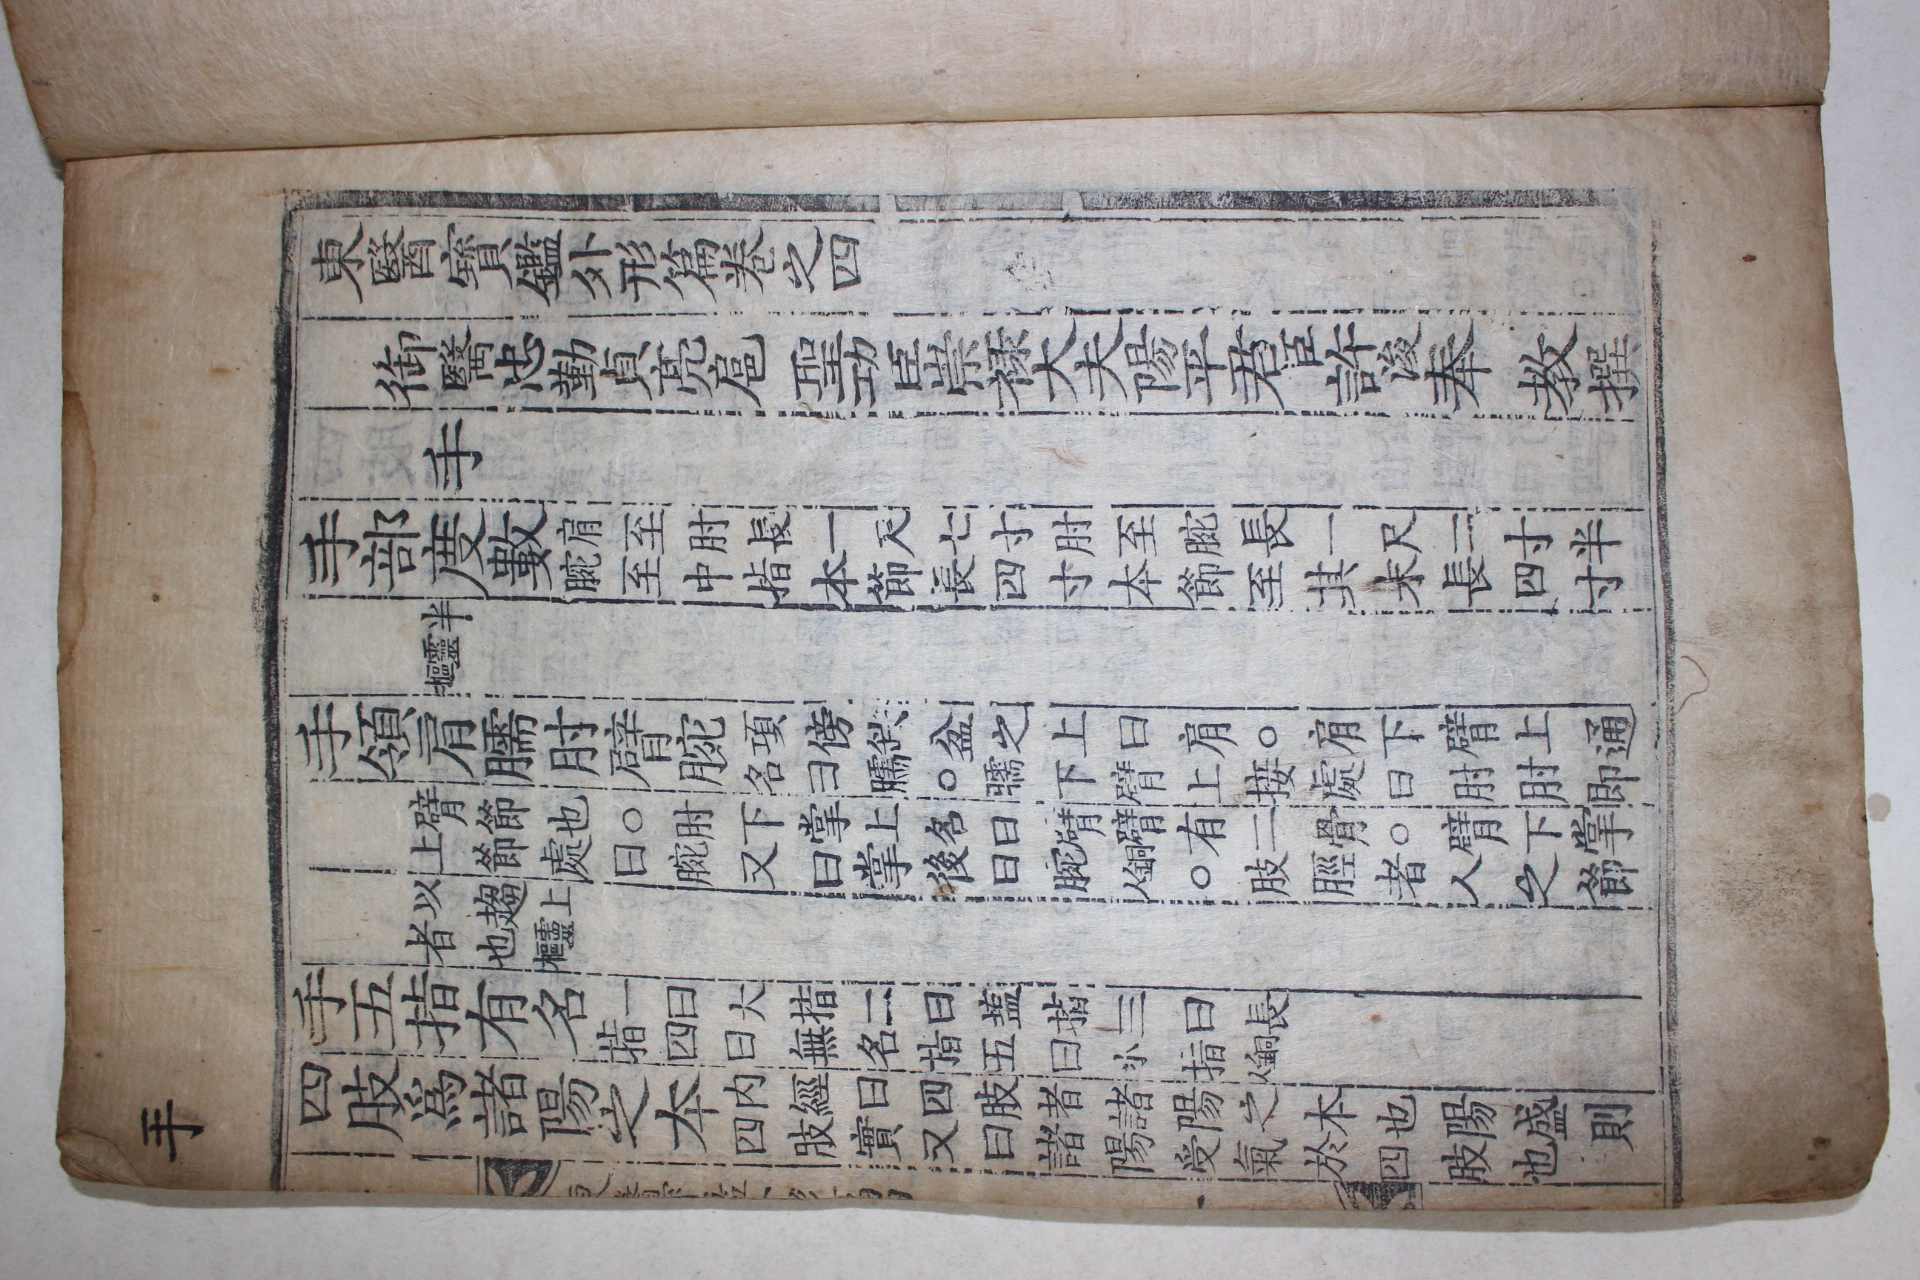 手
東醫寶鑑外形篇卷之四
御醫忠勤貞亮扈 聖功臣崇祿大夫陽平君臣許浚奉 教撰
手
手部度數
肩至肘長一尺七寸肘至腕長一尺二寸半
腕至中指本節長四寸本節至其末長四寸
半靈樞
手領肩臑肘臂腕
項傍缺盆之上曰肩○肩下臂上通
名曰臑○臑下臂上接處曰肘肘即
臂節也○肘下掌上名曰臂臂有二骨○臂下掌
上節處曰腕又曰掌後曰腕銅人○肢脛者人之節
以趨上
者也靈樞
手五指有名
一曰大指二曰塩指三曰長
指四曰無名指五曰小指銅人
四肢爲諸陽之本
内經曰四肢者諸陽之本也陽盛則
四肢實又曰諸陽受氣於四肢也